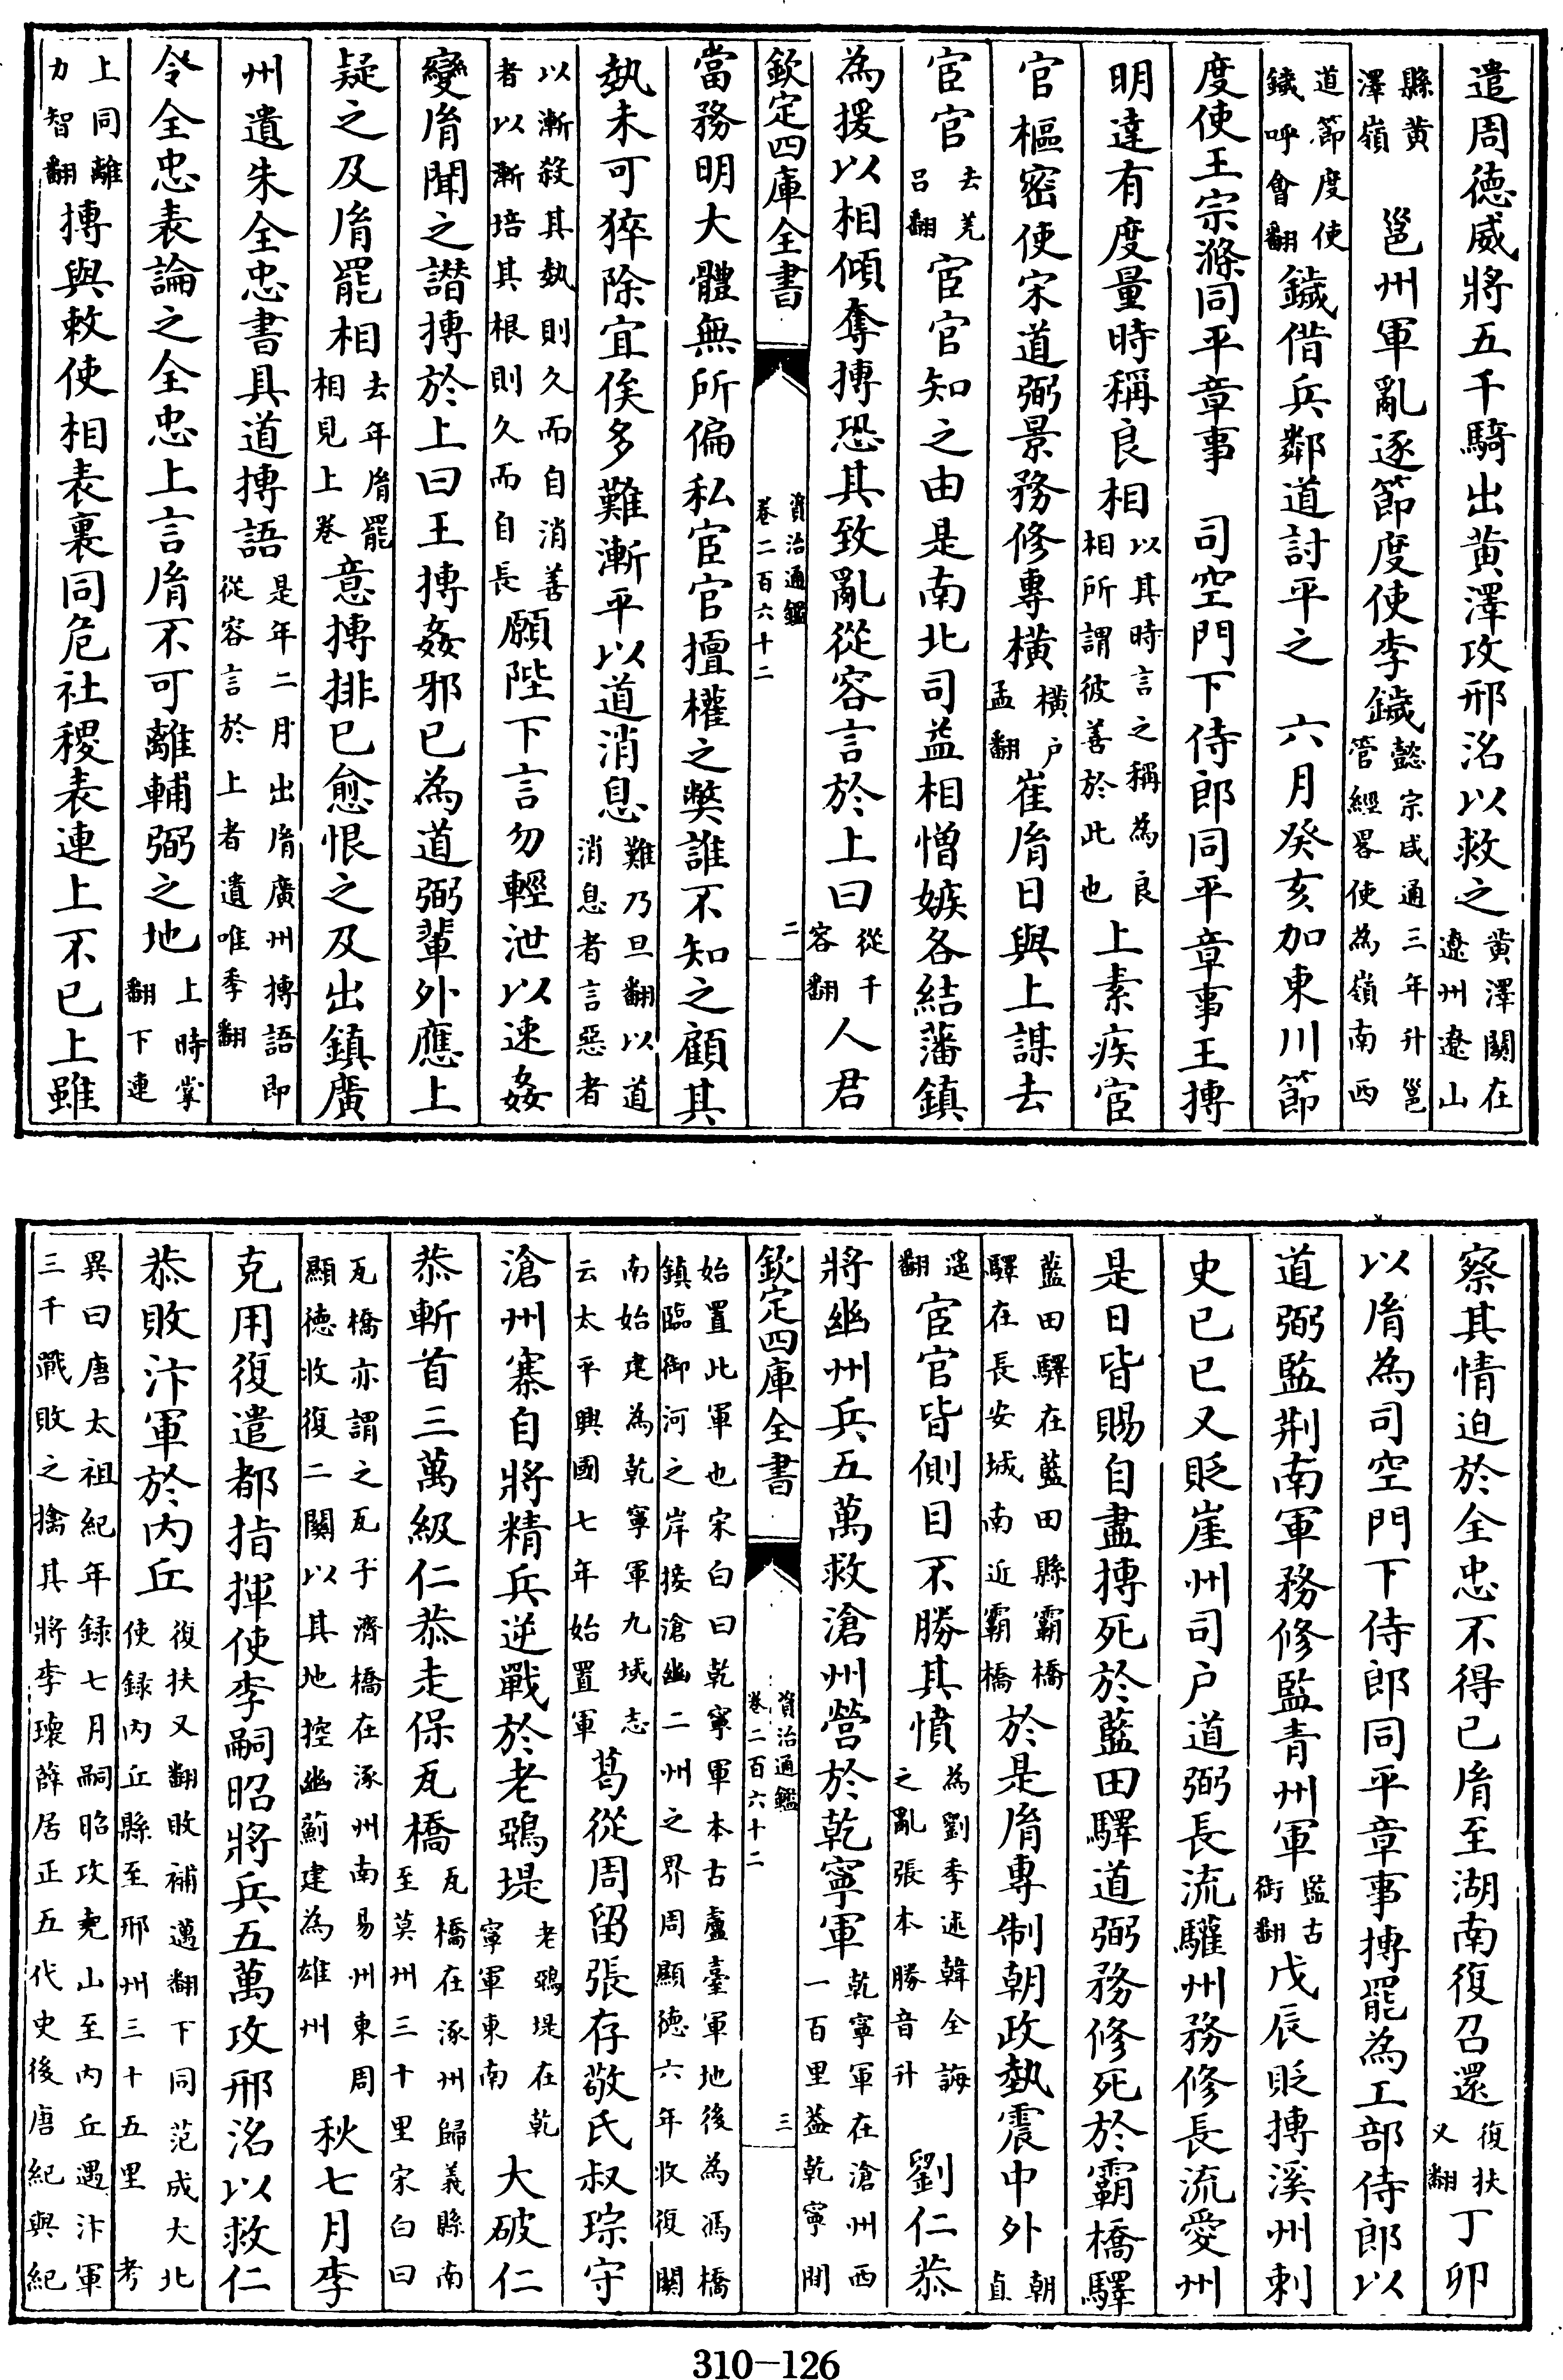 遣周徳威將五千騎出黄澤攻邢洺以救之黄澤關在遼州遼山
縣黄澤嶺 邕州軍亂逐節度使李鐬懿宗咸通三年升邕管經畧使為嶺南西
道節度使鐬呼會翻鐬借兵鄰道討平之 六月癸亥加東川節
度使王宗滌同平章事 司空門下侍郎同平章事王摶
明達有度量時稱良相以其時言之稱為良相所謂彼善於此也上素疾宦
官樞密使宋道弼景務修專横横户孟翻崔胤日與上謀去
宦官去羌吕翻宦官知之由是南北司益相憎嫉各結藩鎮
為援以相傾奪摶恐其致亂從容言於上曰從千容翻人君
欽定四庫全書 資治通鑑卷二百六十二 二
當務明大體無所偏私宦官擅權之弊誰不知之顧其
埶未可猝除宜俟多難漸平以道消息難乃旦翻以道消息者言惡者
以漸殺其埶則久而自消善者以漸培其根則久而自長願陛下言勿輕泄以速姦
變胤聞之譖摶於上曰王摶姦邪已為道弼輩外應上
疑之及胤罷相去年胤罷相見上卷意摶排已愈恨之及出鎮廣
州遺朱全忠書具道摶語是年二月出胤廣州摶語即從容言於上者遺唯季翻
令全忠表論之全忠上言胤不可離輔弼之地上時掌翻下連
上同離力智翻摶與敕使相表裏同危社稷表連上不已上雖
察其情迫於全忠不得已胤至湖南復召還復扶又翻丁卯
以胤為司空門下侍郎同平章事摶罷為工部侍郎以
道弼監荆南軍務修監青州軍監古銜翻戊辰貶摶溪州刺
史已巳又貶崖州司户道弼長流驩州務修長流愛州
是日皆賜自盡摶死於藍田驛道弼務修死於霸橋驛
藍田驛在藍田縣霸橋驛在長安城南近霸橋於是胤專制朝政埶震中外朝直
遥翻宦官皆側目不勝其憤為劉季述韓全誨之亂張本勝音升 劉仁恭
將幽州兵五萬救滄州營於乾寧軍乾寧軍在滄州西一百里葢乾寧間
欽定四庫全書 資治通鑑卷二百六十二 三
始置此軍也宋白曰乾寧軍本古盧臺軍地後為馮橋鎮臨御河之岸接滄幽二州之界周顯徳六年收復關
南始建為乾寧軍九域志云太平興國七年始置軍葛從周留張存敬氏叔琮守
滄州寨自將精兵逆戰於老鵶堤老鵶堤在乾寧軍東南大破仁
恭斬首三萬級仁恭走保瓦橋瓦橋在涿州歸義縣南至莫州三十里宋白曰
瓦橋亦謂之瓦子濟橋在涿州南易州東周顯徳收復二關以其地控幽薊建為雄州 秋七月李
克用復遣都指揮使李嗣昭將兵五萬攻邢洺以救仁
恭敗汴軍於内丘復扶又翻敗補邁翻下同范成大北使録内丘縣至邢州三十五里 考
異曰唐太祖紀年録七月嗣昭攻堯山至内丘遇汴軍三千戰敗之擒其將李瓌薛居正五代史後唐紀與紀
310-126